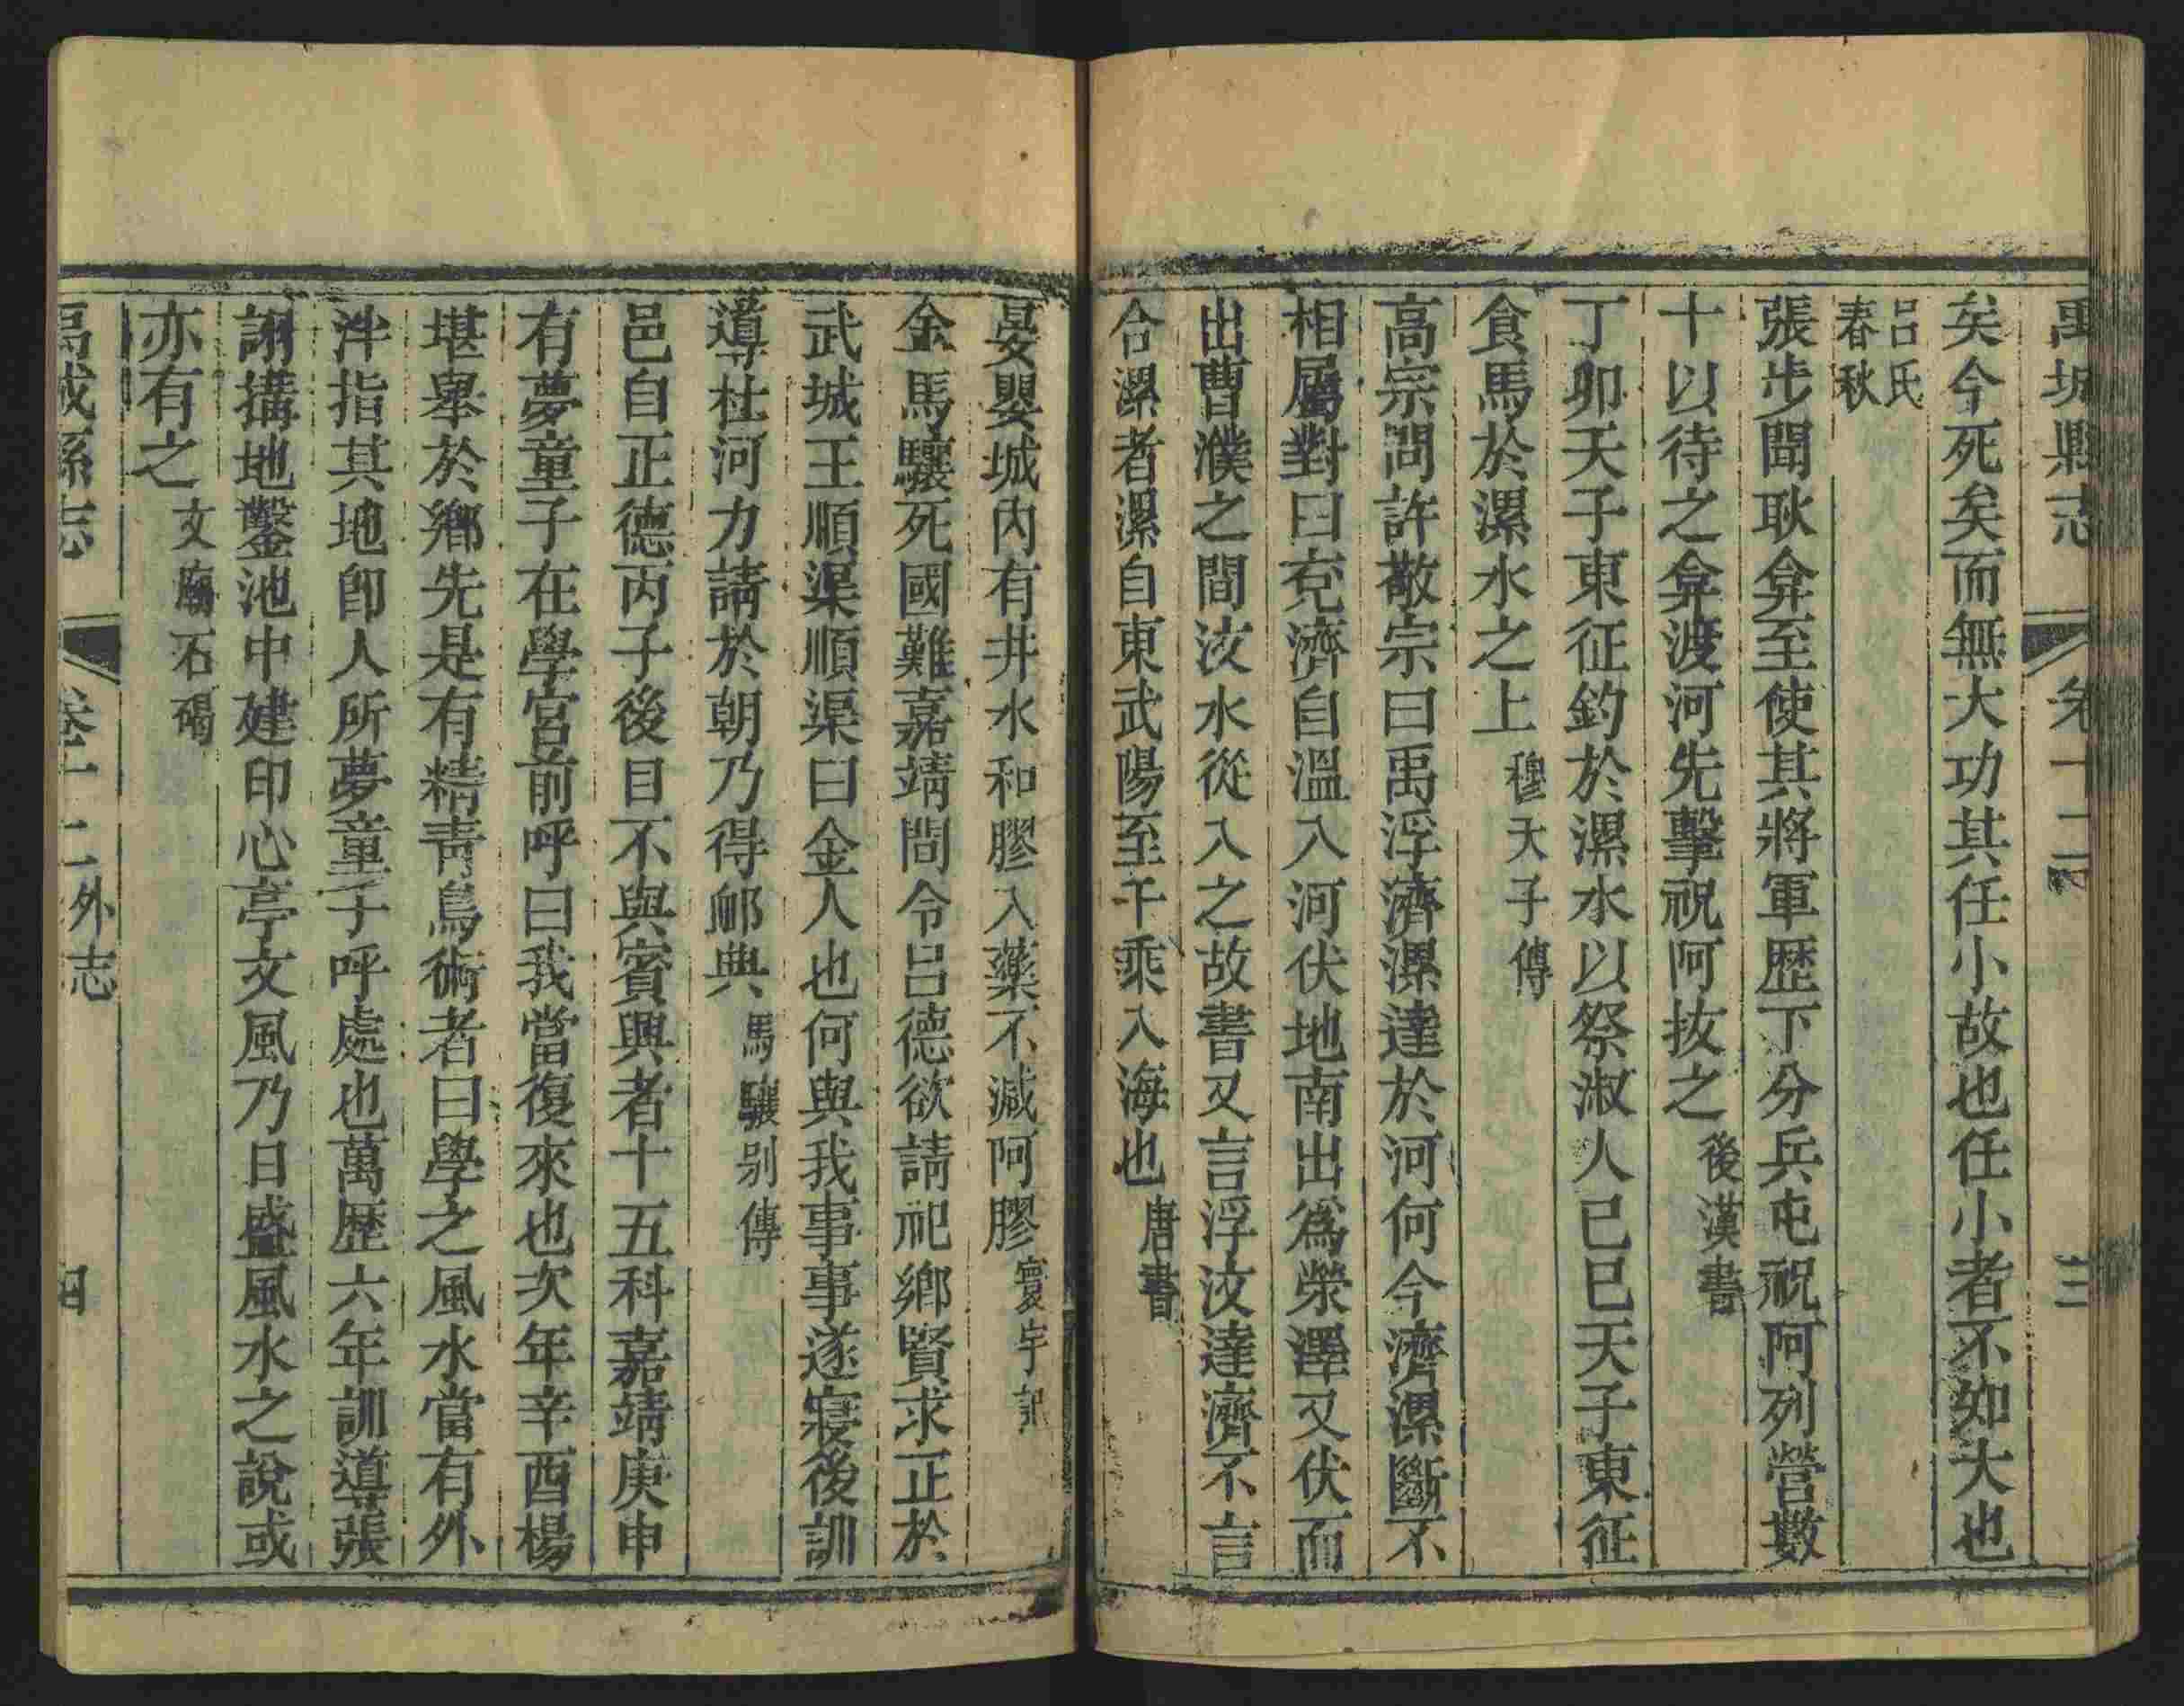 禹城縣志 卷十二 三
矣今死矣而無大功其任小故也任小者不如大也
呂氏
春秋
張步聞耿弇至使其將軍歷下分兵屯祝阿列營數
十以待之弇渡河先擊祝阿拔之後漢書
丁卯天子東征釣於漯水以祭淑人己巳天子東征
食馬於漯水之上穆天子傳
高宗問許敬宗曰禹浮濟漯達於河何今濟漯斷不
相屬對曰兗濟自溫入河伏地南出爲滎澤又伏而
出曹濮之間汶水從入之故書又言浮汶達濟不言
合漯者漯自東武陽至千乘入海也唐書
晏嬰城內有井水和膠入藥不減阿膠寰宇記
金馬驤死國難嘉靖間令呂德欲請祀鄉賢求正於
武城王順渠順渠曰金人也何與我事事遂寢後訓
導杜河力請於朝乃得卹典馬驤别傳
邑自正德丙子後目不與賓興者十五科嘉靖庚申
有夢童子在學宮前呼曰我當復來也次年辛酉楊
堪舉於鄉先是有精靑烏術者曰學之風水當有外
泮指其地卽人所夢童子呼處也萬歷六年訓導張
詡搆地鑿池中建印心亭文風乃日盛風水之說或
亦有之文廟石碣
禹城縣志 卷十二外志 四